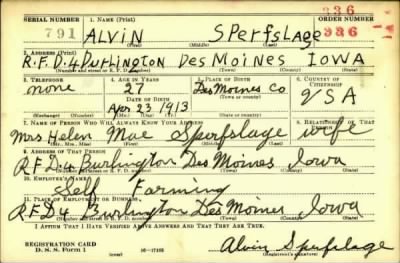 SERIAL NUMBER 1. NAME (Print) 336 ORDER NUMBER
791 ALVIN SPERFSLAGE 336
(First) (Middle) (Last)
2. ADDRESS (Print)
R.F.D.4 Burlington Des Moines IOWA
(Number and street or R. F. D. number) (Town) (County) (State)
3. TELEPHONE 4. AGE IN YEARS 5. PLACE OF BIRTH 6. COUNTRY OF CITIZENSHIP
none 27 Des Moines Co
DATE OF BIRTH USA
Apr 23 1913
(Exchange) (Number) (Mo.) (Day) (Yr.) (State or country)
7. NAME OF PERSON WHO WILL ALWAYS KNOW YOUR ADDRESS 8. RELATIONSHIP OF THAT PERSON
Mrs Helen Mae Sperfslage wife
(Mr., Mrs., Miss) (First) (Middle) (Last)
9. ADDRESS OF THAT PERSON
R.F.D.4 Burlington Des Moines Iowa
(Number and street or R. F. D. number) (Town) (County) (State)
10. EMPLOYER'S NAME
Self Farming
11. PLACE OF EMPLOYMENT OR BUSINESS
R.F.D.4 Burlington Des Moines Iowa
(Number and street or R. F. D. number) (Town) (County) (State)
I AFFIRM THAT I HAVE VERIFIED ABOVE ANSWERS AND THAT THEY ARE TRUE.
REGISTRATION CARD
D. S. S. Form 1 (over) 16—17105 Alvin Sperfslage